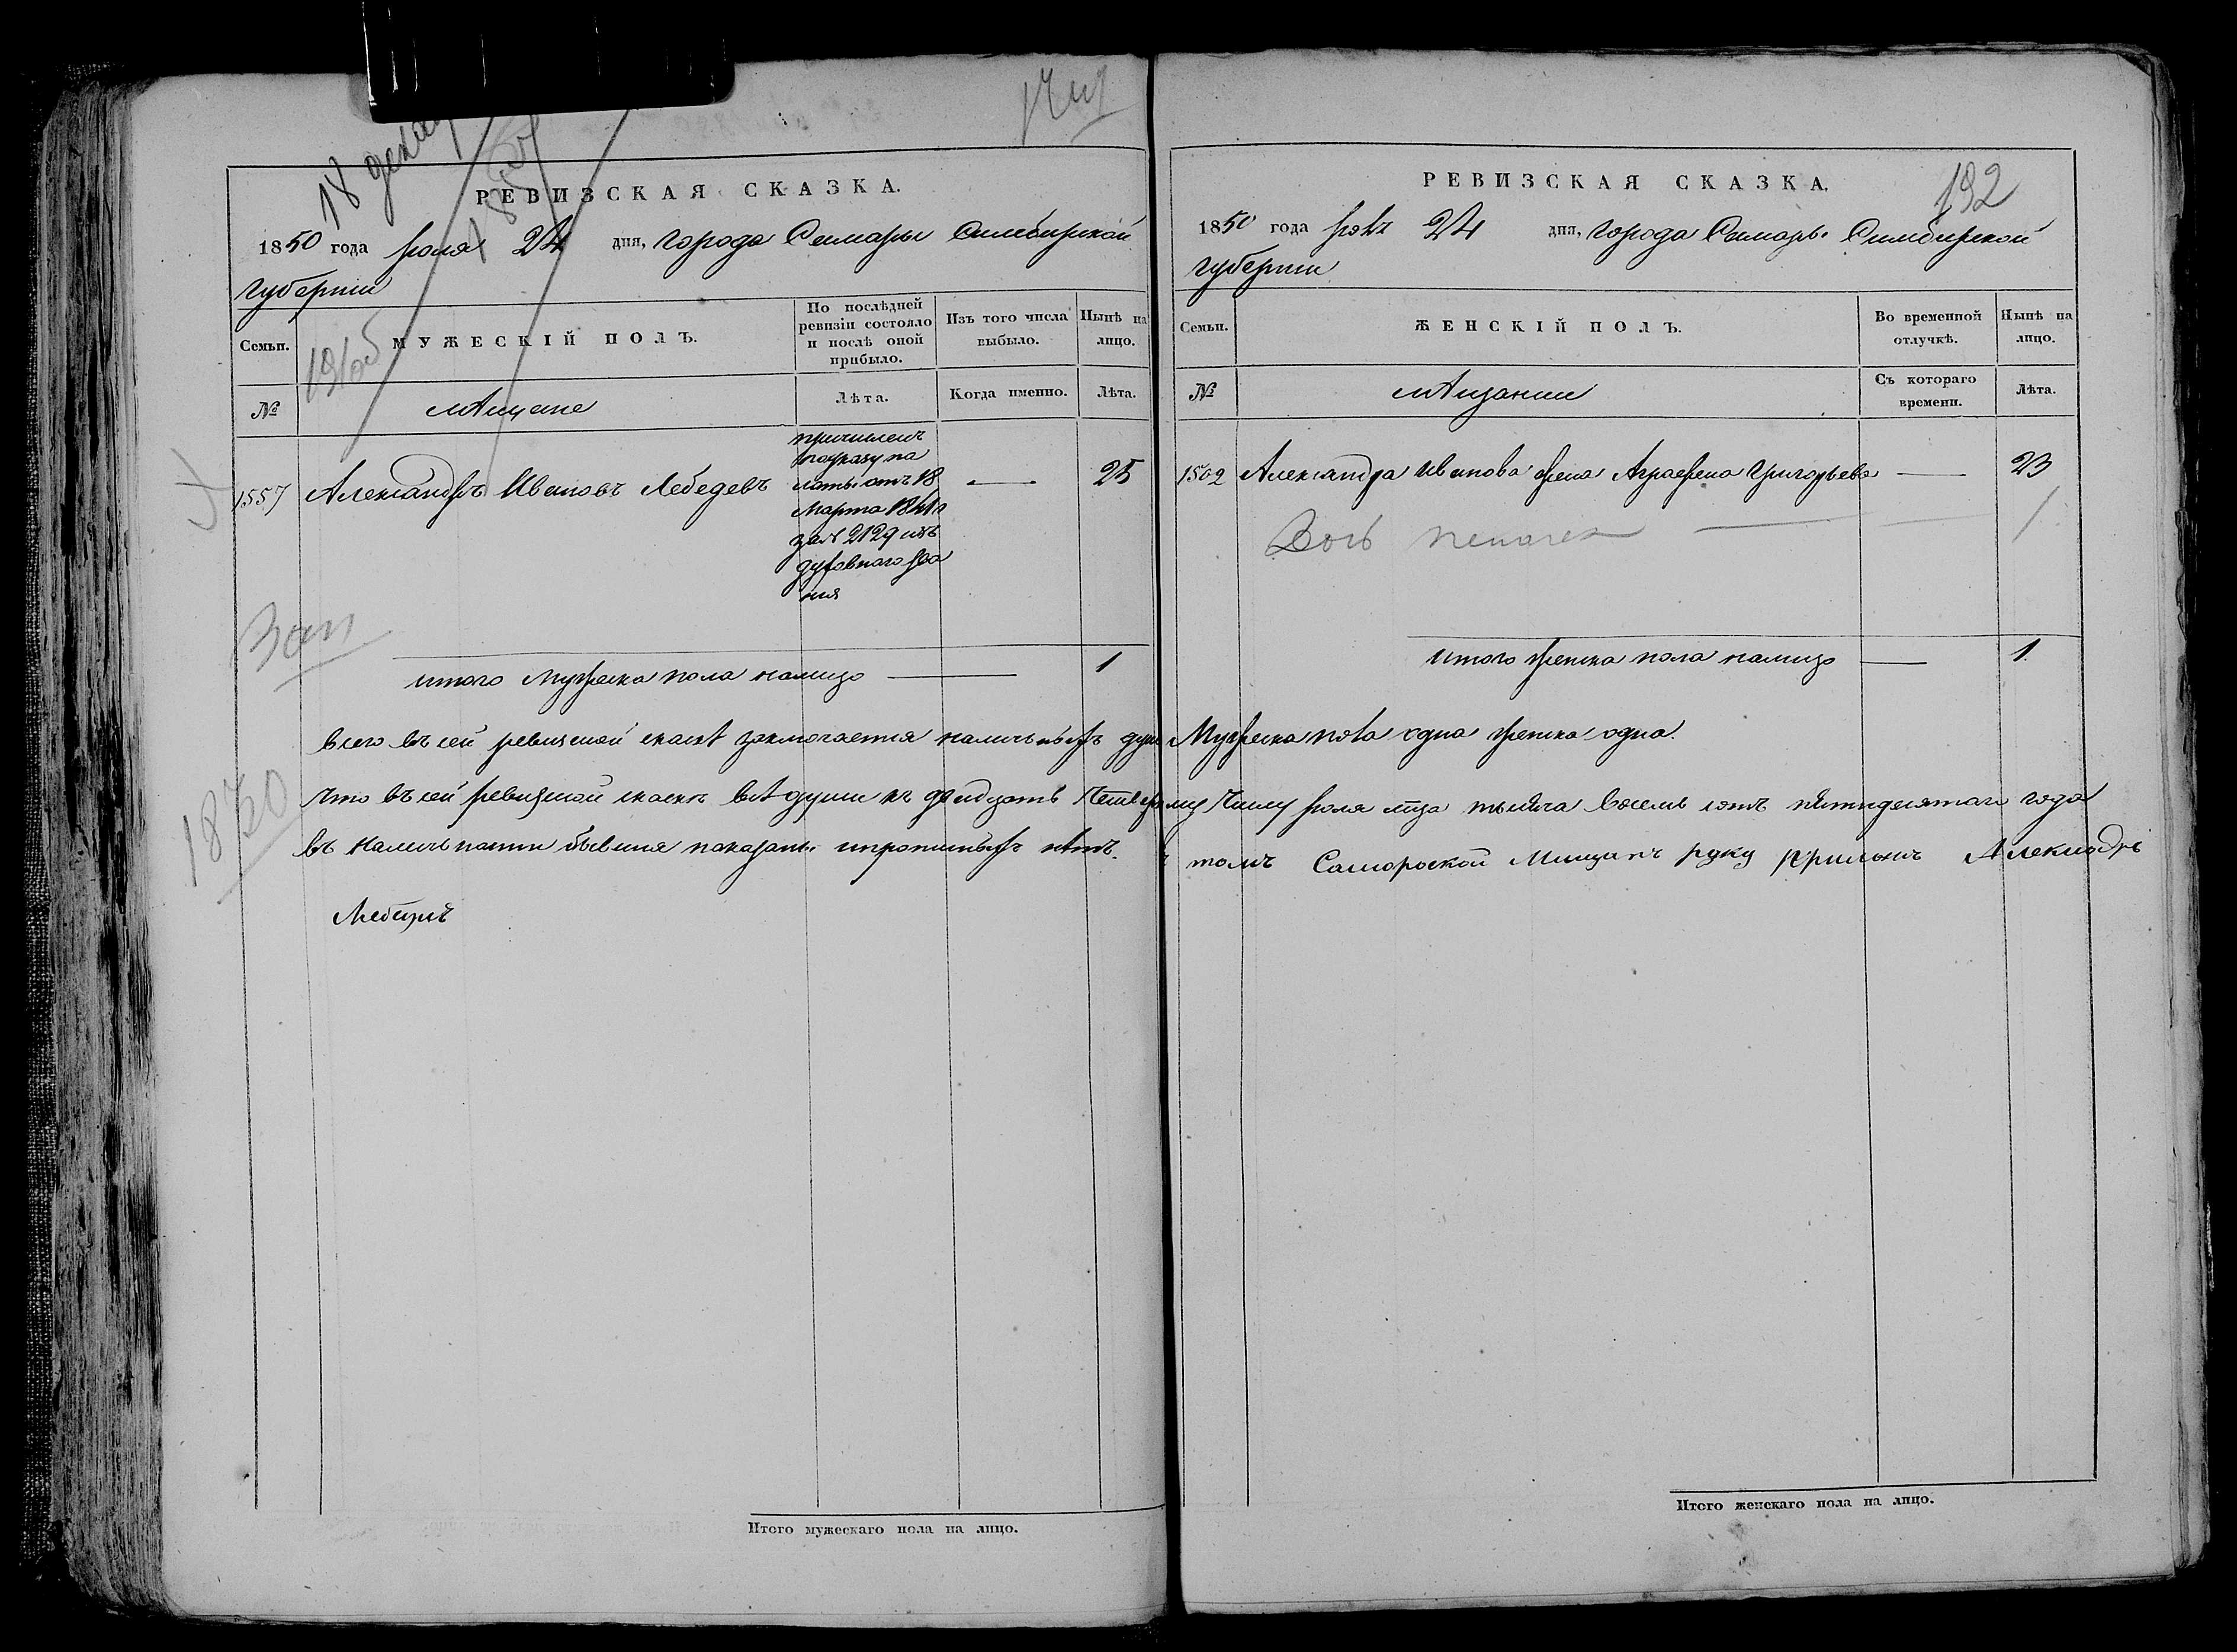 18
РЕВИЗСКАЯ СКАЗКА.
1850 года июля 24 дня, города Самары Симбирской
губернии
Семьи.
МУЖЕСКІЙ ПОЛЪ.
По послѣдней
ревизіи состояло
и послѣ оной
прибыло.
Изъ того числа
выбыло.
Нынѣ на
лицо.
№
Мещане
Лѣта.
Когда именно.
Лѣта.
1557 Александръ Ивановъ Лебедевъ
причисленъ
по указу па
латы отъ 18
Марта 1841
за № 2129 изъ
духовнаго зва
ния
25
Зап
итого Мужеска пола налицо 1
1850
Лебедевъ
Итого мужескаго пола на лицо.
РЕВИЗСКАЯ СКАЗКА.
192
1850 года 24 дня, города Самары Симбирской
губернии
Семьи.
ЖЕНСКІЙ ПОЛЪ.
Во временной
отлучкѣ.
Нынѣ на
лицо.
№
Мещанки
Съ котораго
времени.
Лѣта.
1502 Александра Иванова жена Аграфена Григорьева 23
итого женска пола налицо 1.
всего въ сей ревизской сказкѣ заключается наличныхъ душъ Мужеска пола одна женска одна.
что въ сей ревизской сказкѣ всѣ души къ двадцать Четвертому Числу июля тысяча восемь сотъ пятидесятаго года
въ наличности бывшия показаны и прописныхъ нѣтъ. въ томъ Самарской Мещанъ руку приложилъ Александръ
Итого женскаго пола на лицо.